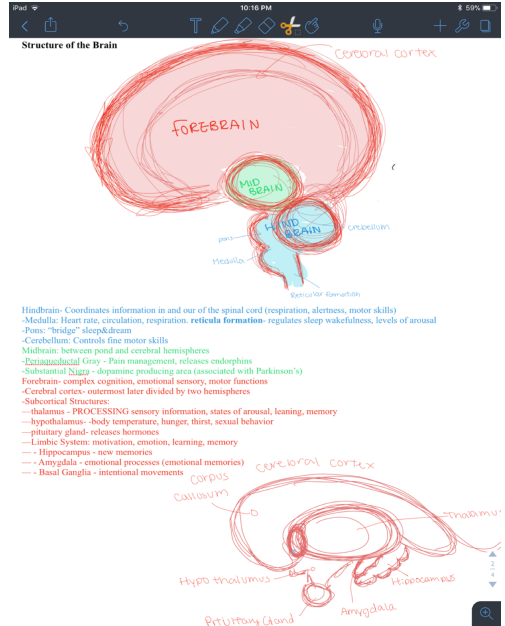 iPad
10:16 PM
59%
T
Structure of the Brain
Cerebral cortex
FOREBRAIN
MID
BRAIN
HIND
BRAIN
cerebellum
pons
Medulla
Reticular formation
Hindbrain- Coordinates information in and our of the spinal cord (respiration, alertness, motor skills)
-Medulla: Heart rate, circulation, respiration. reticula formation- regulates sleep wakefulness, levels of arousal
-Pons: “bridge” sleep&dream
-Cerebellum: Controls fine motor skills
Midbrain: between pond and cerebral hemispheres
-Periaqueductal Gray - Pain management, releases endorphins
-Substantial Nigra - dopamine producing area (associated with Parkinson’s)
Forebrain- complex cognition, emotional sensory, motor functions
-Cerebral cortex- outermost later divided by two hemispheres
-Subcortical Structures:
—thalamus - PROCESSING sensory information, states of arousal, leaning, memory
—hypothalamus- -body temperature, hunger, thirst, sexual behavior
—pituitary gland- releases hormones
—Limbic System: motivation, emotion, learning, memory
— - Hippocampus - new memories
— - Amygdala - emotional processes (emotional memories)
— - Basal Ganglia - intentional movements
cerebral cortex
Corpus
Callosum
Thalamus
Hypothalumus
Hippocampus
Amygdala
Pituitary Gland
2
4